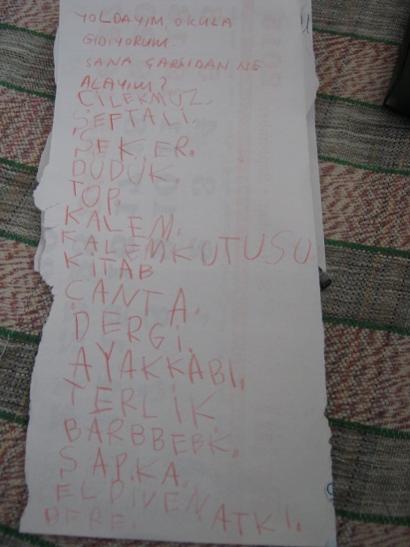 YOLDAYIM, OKULA
GİDİYORUM.
SANA ÇARŞIDAN NE
ALAYIM?
ÇİLEKMUZ.
ŞEFTALİ.
ŞEKER.
DÜDÜK.
TOP.
KALEM.
KALEMKUTUSU
KİTAB
ÇANTA.
DERGİ.
AYAKKABI.
TERLİK
BARBBEBK.
ŞAPKA.
ELDİVEN. ATKI.
BERE.